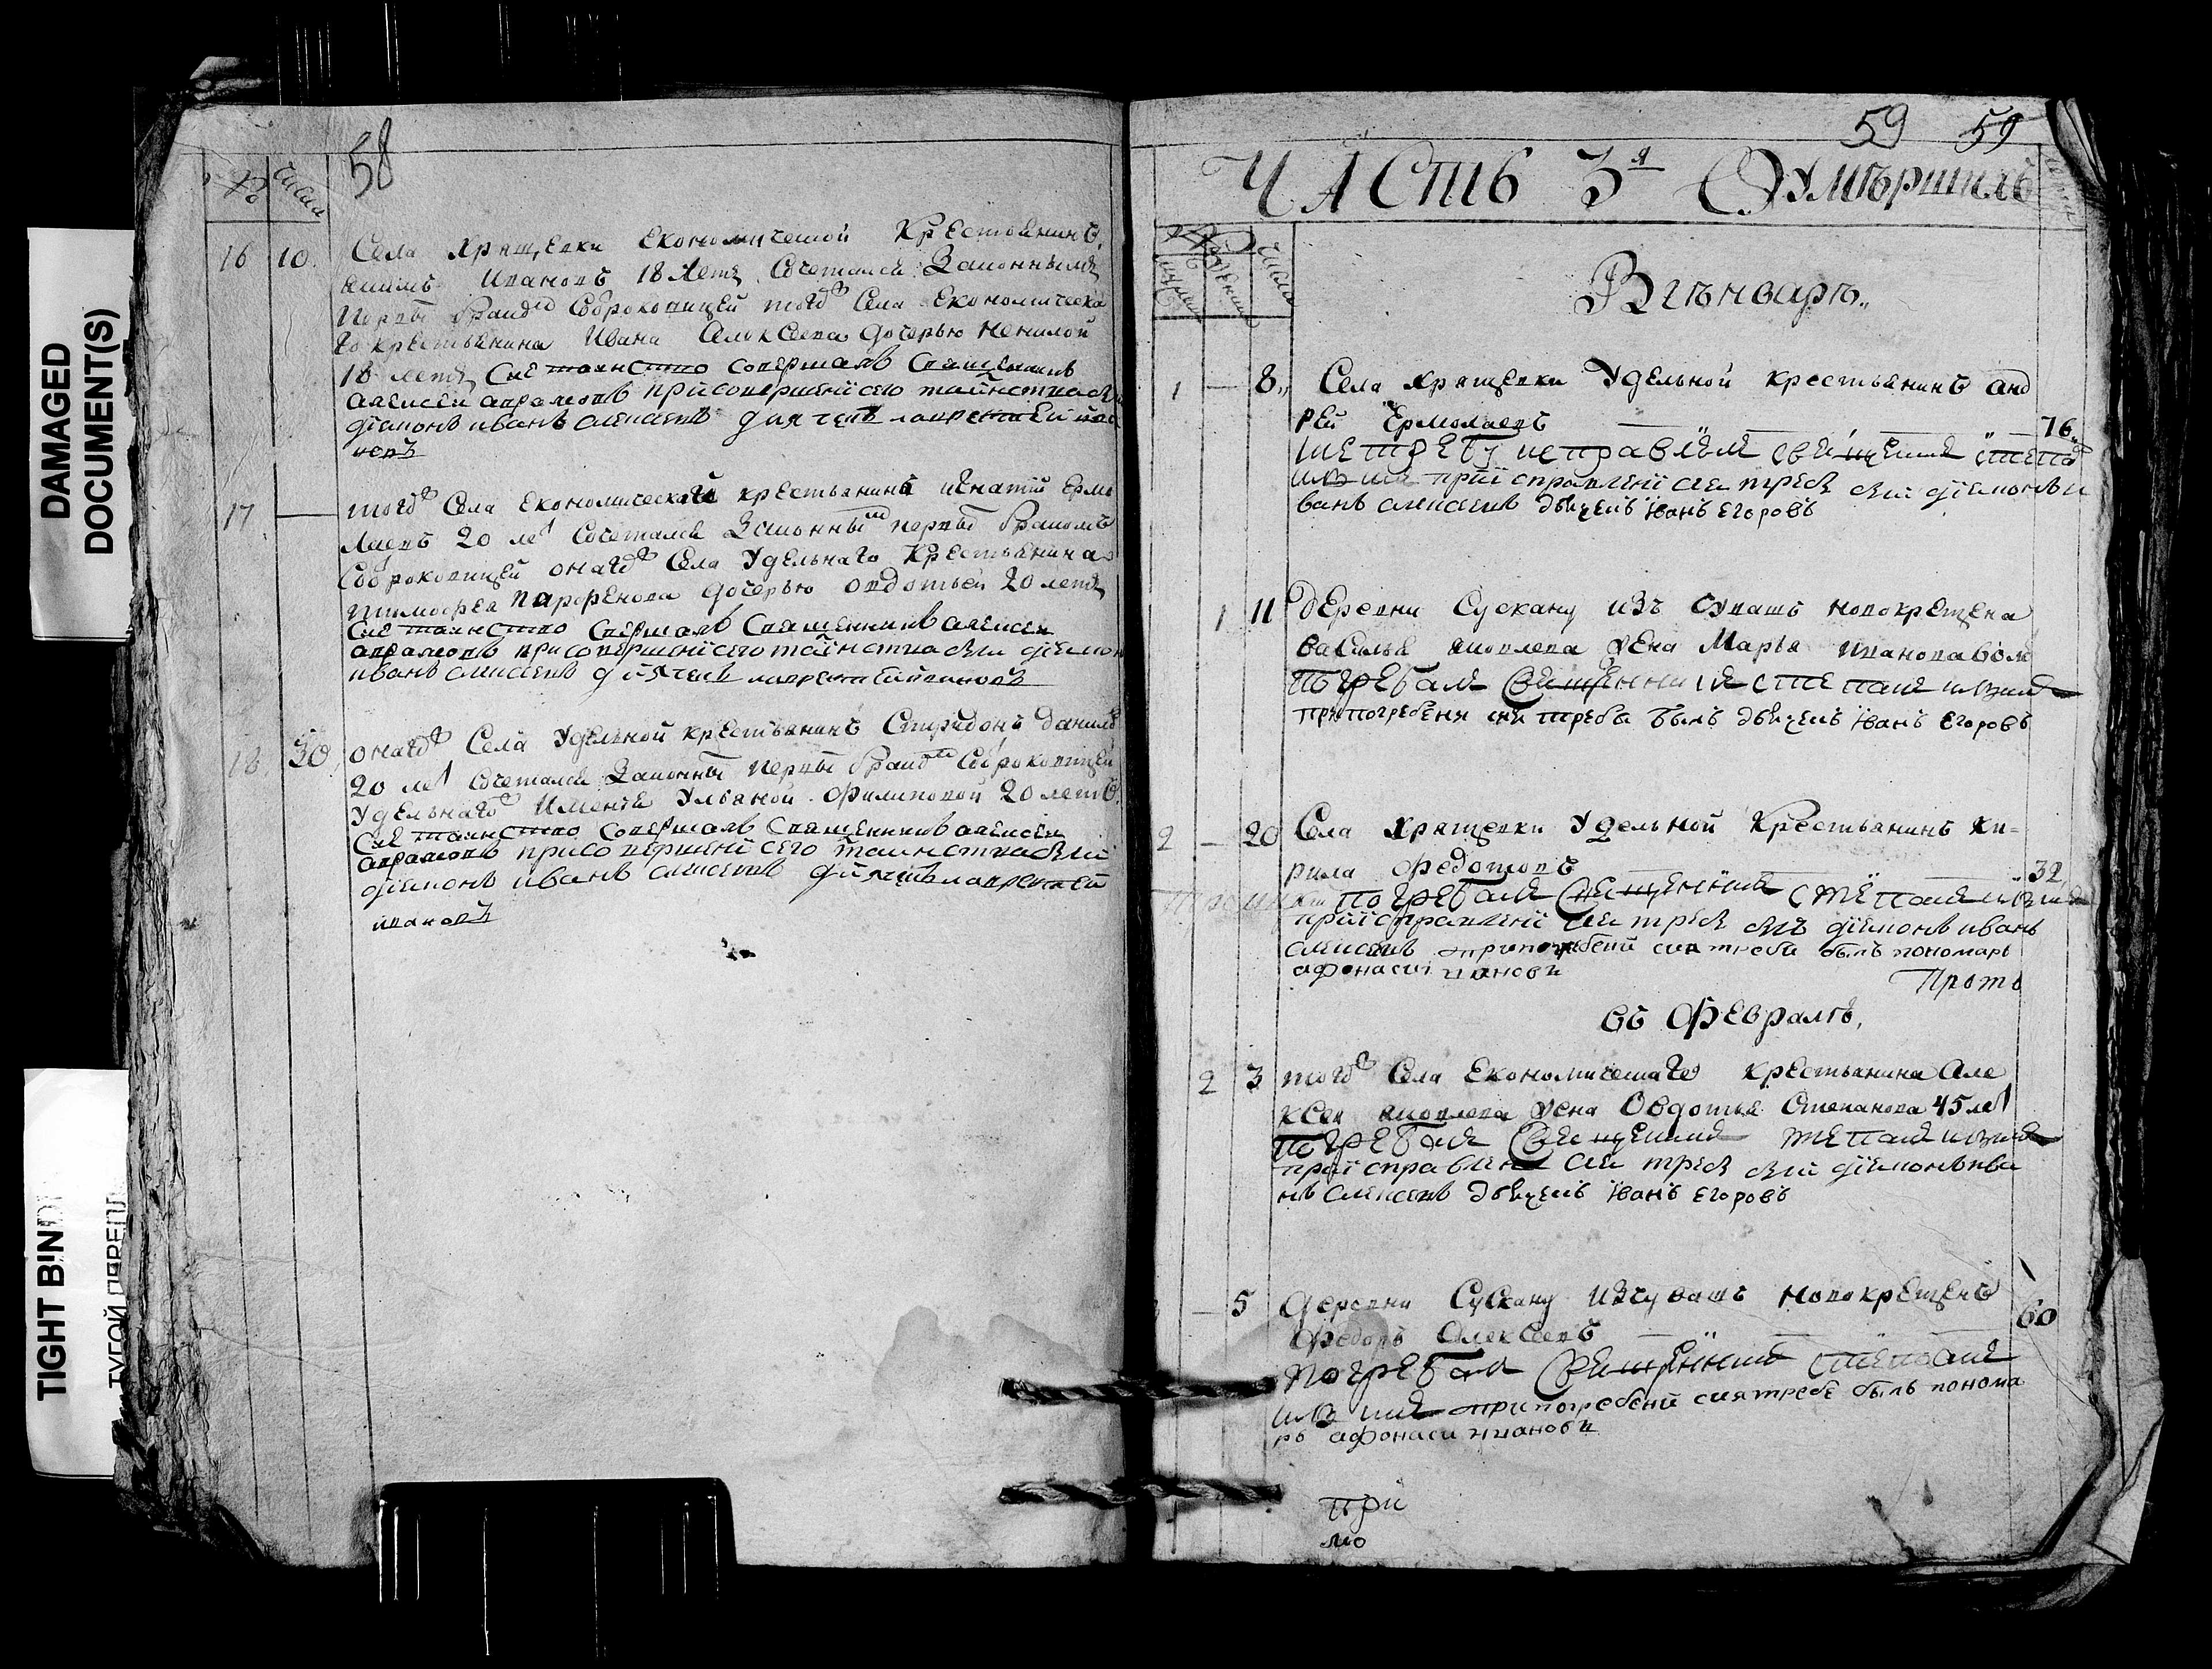 DAMAGED
DOCUMENT(S)
TIGHT BIND
ТУГОЙ ПЕРЕПЛ
58
№ числа
16 10. Села Хрящевки Економической Крестьянинъ
Иванов 18 летъ Сочетался Законнымъ
первы брако Соброковицей того Села Економическа
го крестьянина Ивана Алексеева дочерью Ненилой
18 летъ Сие таинство совершалъ Священникъ
алексеи аврамовъ присовершенiи сего таинства были
дiаконъ иванъ алексеевъ дьячекъ лаврентеи ива
новъ
17 того Села Економической крестьянинъ игнатiй Ермо
лаевъ 20 ле Сочетался Законны первы бракомъ
Соброковицей онаго Села Удельнаго Крестьянина
тимофея парфенова дочерью овдотьей 20 летъ
Сие таинство совершалъ Священникъ алексеи
аврамовъ присовершенiи сего таинства были дiако
иванъ алексеевъ дьячекъ лаврентеи ивановъ
18. 30 онаго Села Удельной крестьянинъ Спиридонъ данило
20 ле Сочетался Законны первы брако Соброковицей
Удельнаго Имения Ульяной Филиповой 20 летъ
Сие таинство совершалъ Священникъ алексеи
аврамовъ присовершенiи сего таинства были
дiаконъ иванъ алексеевъ дьячекъ лаврентеи
ивановъ
59 59
ЧАСТЬ 3я Оумершихъ
числа
Вгенваре
1 — 8 Села Хрящевки Удельной крестьянинъ анд
рей Ермолаевъ — 76
требу исправлял священник степан
при исправлении сеи требы были дiаконъ и
ванъ алексеевъ дьячекъ Иванъ Егоровъ
1 11 деревни Сускану изъ Чувашъ новокрещена
василья яковлева жена Марья иванова 60 ле
погребал священник степан
при погребени сеи требы былъ дьячекъ Иванъ Егоровъ
2 — 20 Села Хрящевки Удельной Крестьянинъ Ки-
рила Федотовъ — 32
погребал священник степан
при исправленiи сеи требы былъ дiаконъ иванъ
алексеевъ при погребении сиа требы былъ пономарь
афонаси ивановъ
Прото
въ Феврале,
2 3 того Села Економическаго крестьянина Але
ксея яковлева жена Овдотья Степанова 45 ле
погребал священник степан
при исправлени сеи требы были дiаконъ ива
нъ алексеевъ дьячекъ Иванъ Егоровъ
— 5 деревни Сускану изчувашъ новокрещенъ
Федоръ Алексеевъ — 60
погребал священник степан
при погребени сиа требе былъ понома
рь афонаси ивановъ
при
мо